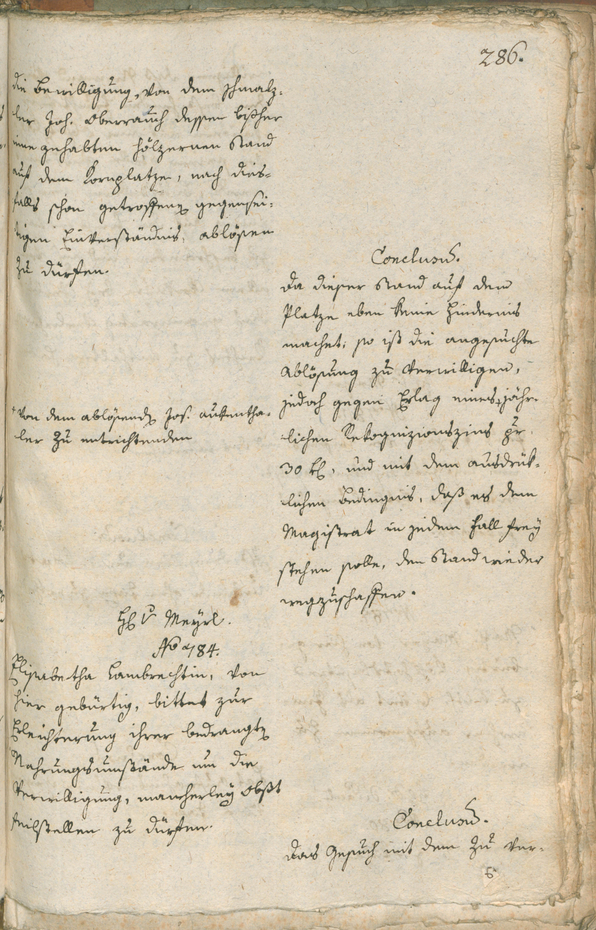 286.
die Bewilligung, von dem Schmalz-
ler Joh. Oberrauch dessen bisher
inne gehabten hölzernen Stand
auf dem Kornplatze, nach dies-
falls schon getroffenen gegensei-
tigen Einverständnis, ablösen
zu dürfen.
Conclusum.
Da dieser Stand auf dem
Platze eben keine Hindernis
machet, so ist die angesuchte
Ablösung zu verwilligen,
jedoch gegen Erlag eines + jähr-
lichen Rekognizionszins pr
30 kr, und mit dem ausdrük-
lichen Bedingnis, daß es dem
Magistrat in jedem Fall frey
stehen solle, den Stand wieder
wegzuschaffen.
+ von dem ablösenden Jos. Aukentha-
ler zu entrichtenden
H. v. Meyrl.
No 784.
Elisabetha Lambrechtin, von
hier gebürtig, bittet zur
Erleichterung ihrer bedrangten
Nahrungsumstände um die
Verwilligung, mancherley Obst
feilstellen zu dürfen.
Conclusum.
Das Gesuch mit dem zu ver-